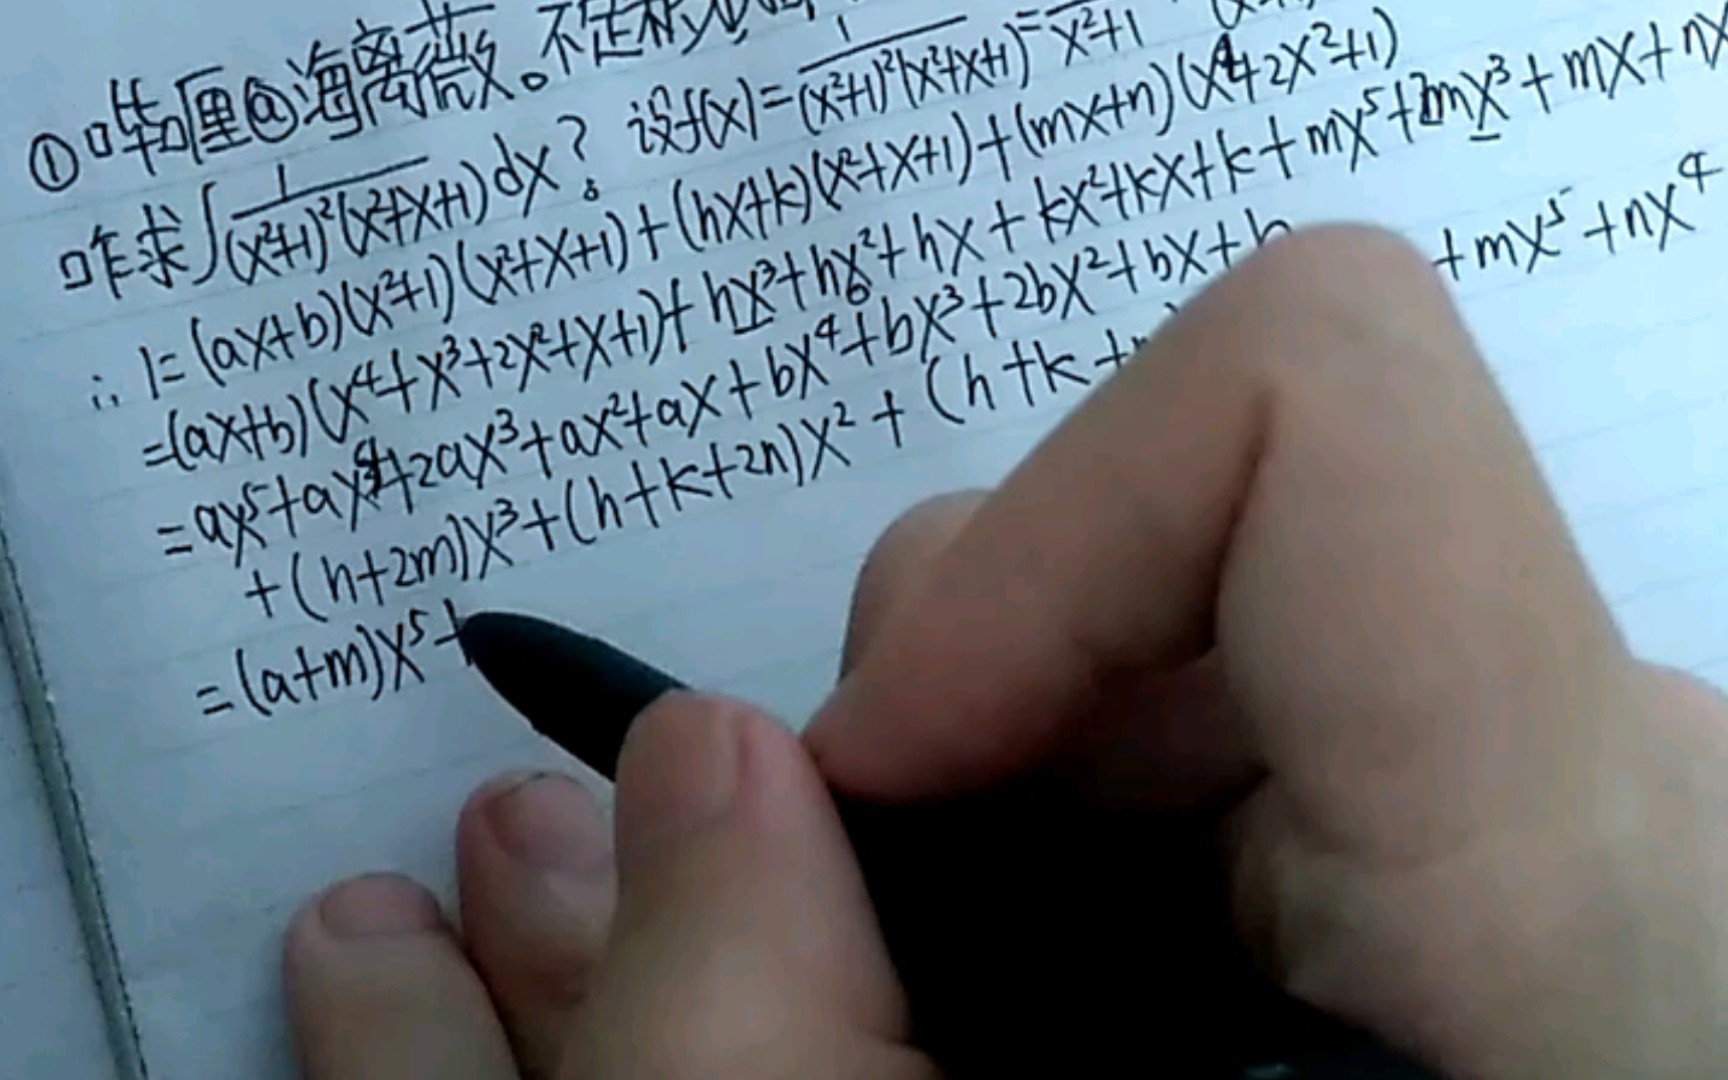 ①哔哩@海离薇。不定积
咋求∫1/((x²+1)²(x²+x+1))dx? 设f(x)=1/((x²+1)²(x²+x+1))=/(x²+1)
∴1=(ax+b)(x²+1)(x²+x+1)+(hx+k)(x²+x+1)+(mx+n)(x⁴+2x²+1)
=(ax+b)(x⁴+x³+2x²+x+1)+hx³+hx²+hx+kx²+kx+k+mx⁵+2mx³+mx+nx
=ax⁵+ax⁴+2ax³+ax²+ax+bx⁴+bx³+2bx²+bx+b +mx⁵+nx⁴
+(h+2m)x³+(h+k+2n)x²+(h+k+
=(a+m)x⁵+